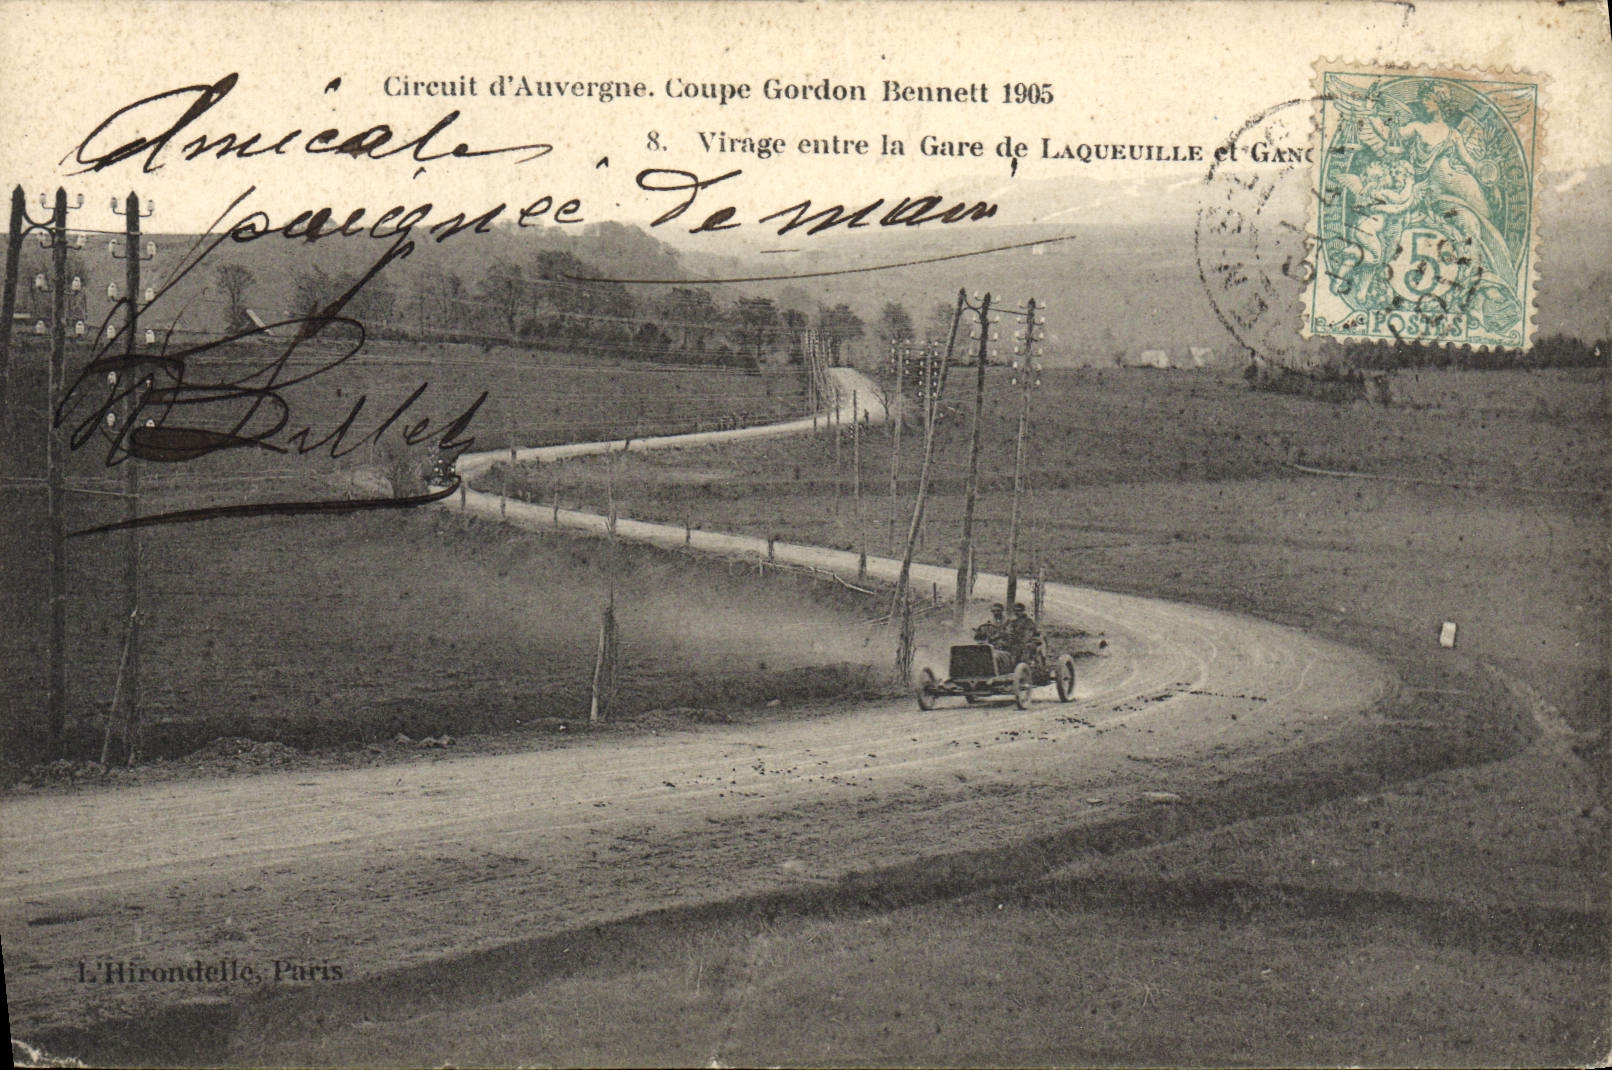 Circuit d'Auvergne. Coupe Gordon Bennett 1905
8. Virage entre la Gare de LAQUEUILLE et GANC
Amicale
poignée de main
L'Hirondelle, Paris
FRANÇAISE
5
POSTES